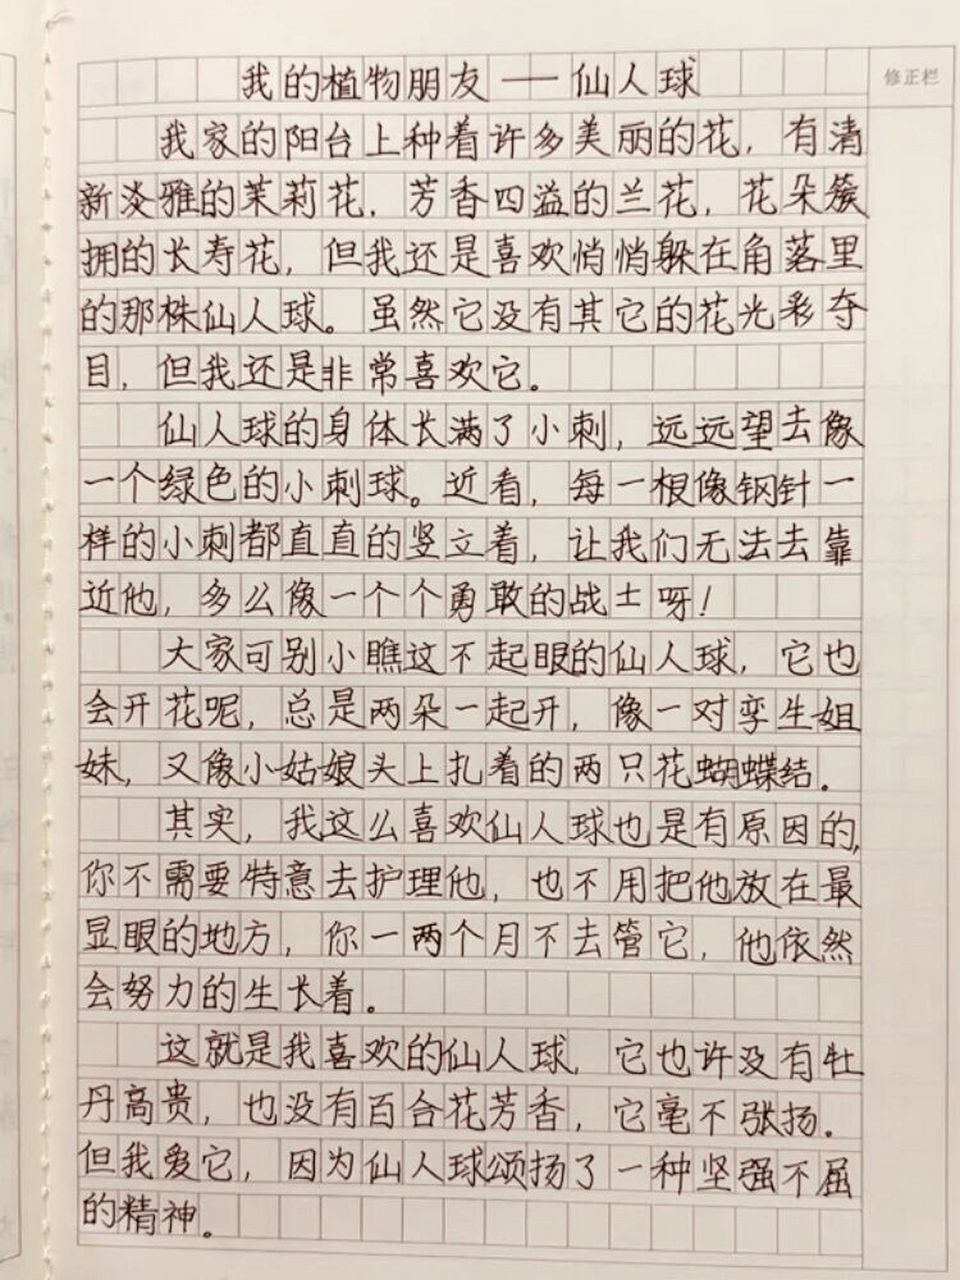 我的植物朋友——仙人球
修正栏
我家的阳台上种着许多美丽的花，有清
新淡雅的茉莉花，芳香四溢的兰花，花朵簇
拥的长寿花，但我还是喜欢悄悄躲在角落里
的那株仙人球。虽然它没有其它的花光彩夺
目，但我还是非常喜欢它。
仙人球的身体长满了小刺，远远望去像
一个绿色的小刺球。近看，每一根像钢针一
样的小刺都直直的竖立着，让我们无法去靠
近他，多么像一个个勇敢的战士呀！
大家可别小瞧这不起眼的仙人球，它也
会开花呢，总是两朵一起开，像一对孪生姐
妹，又像小姑娘头上扎着的两只花蝴蝶结。
其实，我这么喜欢仙人球也是有原因的，
你不需要特意去护理他，也不用把他放在最
显眼的地方，你一两个月不去管它，他依然
会努力的生长着。
这就是我喜欢的仙人球，它也许没有牡
丹高贵，也没有百合花芳香，它毫不张扬。
但我爱它，因为仙人球颂扬了一种坚强不屈
的精神。